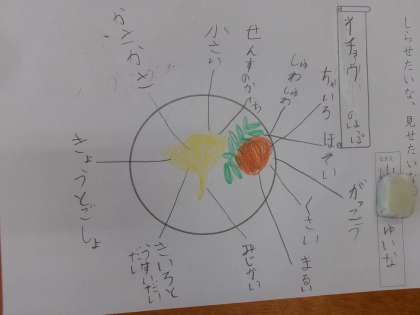 しらせたいな 見せたいな
イチョウ
ちゃいろ
ほそい
しゅわしゅわ
せんすのかたち
小さい
かさかさ
がっこう
くさい
まるい
みじかい
きいろと
うすいだい
だい
きょうとごしょ